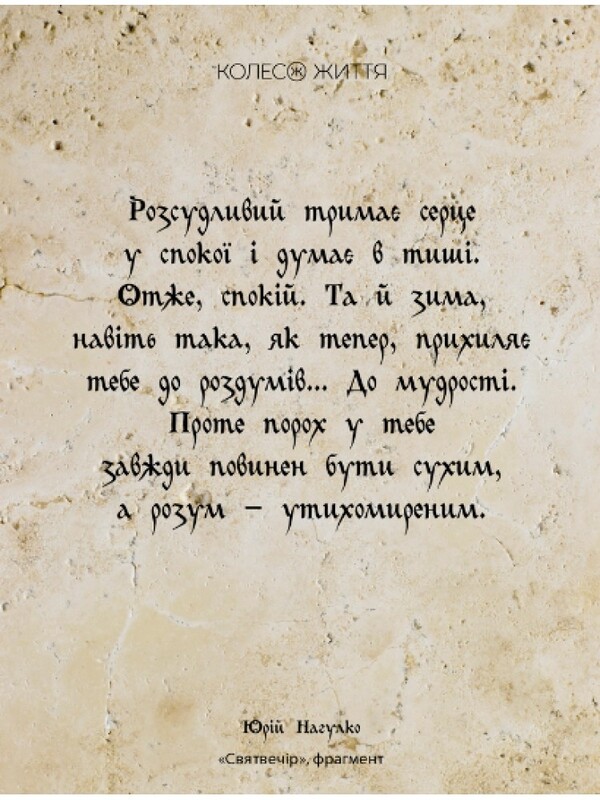 КОЛЕСО ЖИТТЯ
Розсудливий тримає серце
у спокої і думає в тиші.
Отже, спокій. Та й зима,
навіть така, як тепер, прихиляє
тебе до роздумів... До мудрості.
Проте порох у тебе
завжди повинен бути сухим,
а розум – утихомиреним.
Юрій Нагулко
«Святвечір», фрагмент